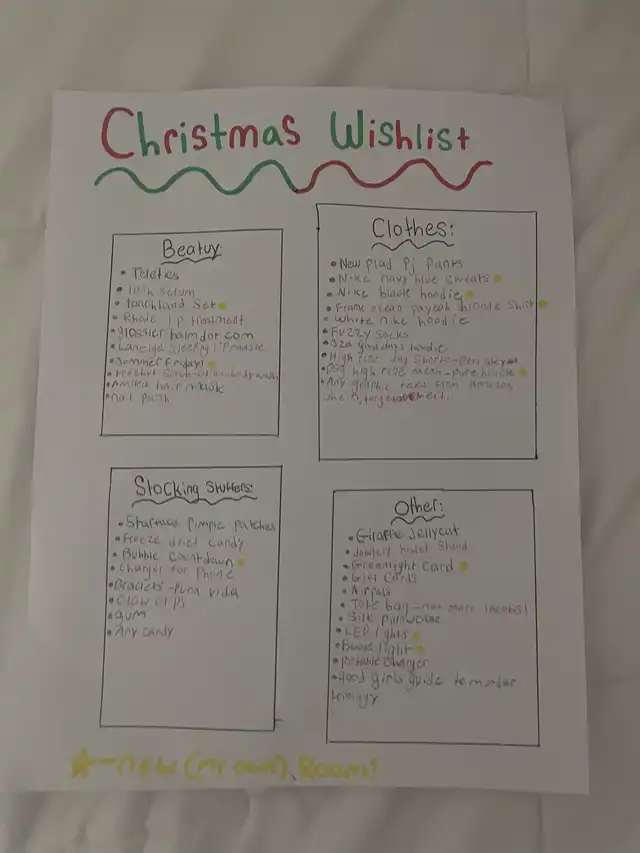 Christmas Wishlist
Beatuy:
Teleties
lash serum
touchland Set
Rhode lip treatment
glossier balmdotcom
Laneige Sleeping lip mask
Summer Fridays
Tree hut Scrub
Amika hair mask
nail polish
Clothes:
New Plad Pj Pants
Nike navy blue Sweats
Nike black hoodie
Frank ocean blonde Shirt
White nike hoodie
Fuzzy socks
Sza good days hoodie
High rise
high rise mesh - pure black
Any graphic tees from amazon
shein, target
Stocking Stuffers:
Starface Pimple Patches
Freeze dried candy
Bubble Countdown
Charger for Phone
Braclets - Pura vida
Claw clips
gum
Any candy
Other:
Giraffe Jellycat
Jewlery holder Stand
Greenlight Card
Gift Cards
Airpods
Tote bag - not marc Jacobs!
Silk Pillowcase
LED lights
Book light
Portable charger
Good girls guide to murder
trology
- new (my own) Room!